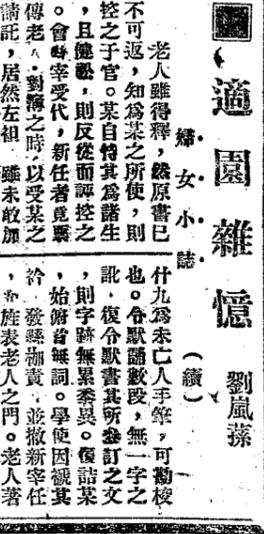 適園雜憶
劉嵐蓀
婦女小誌
(續)
老人雖得釋,然原書已
不可返,知為某之所使,則
控之于官。某自恃其為諸生
,且健訟,則反從而誣控之
。會宰受代,新任者竟票
傳老人,對簿之時,以受某之
請託,居然左袒,雖未敢加
什九為未亡人手筆,可勘
也。令默誦數段,無一字之
訛,復令默書其所參訂之文
,則字跡無累黍異。復詰某
,始俯首無詞。學使因褫其
衿,發縣責,並撤新宰任
,旌表老人之門。老人著